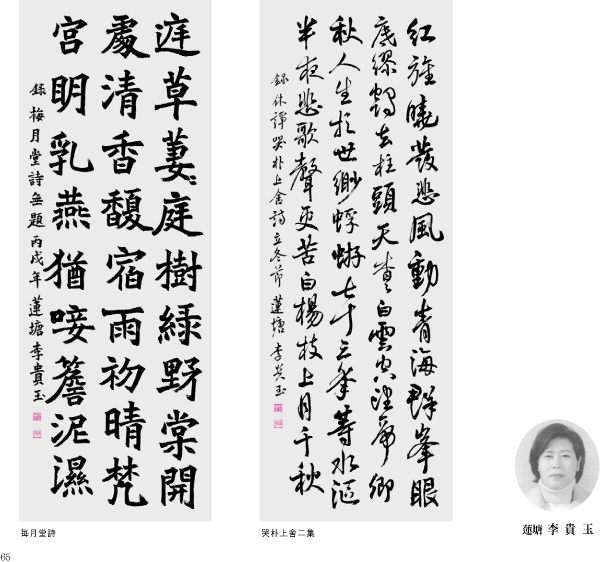 草萋〻庭樹綠野棠開
處清香馥宿雨初晴梵
宮明乳燕猶唼簷泥濕
錄梅月堂詩無題丙戌年蓮塘李貴玉
紅旌曉發悲風動青海群峯眼
底鶴去柱頭天杳〻白雲空望帝鄉
秋人生於世渺蜉蝣七十三年等水漚
半夜悲歌聲更苦白楊枝上月千秋
錄休哭朴上舍詩立冬節蓮塘李貴玉
每月堂詩
哭朴上舍二集
蓮塘 李貴玉
65